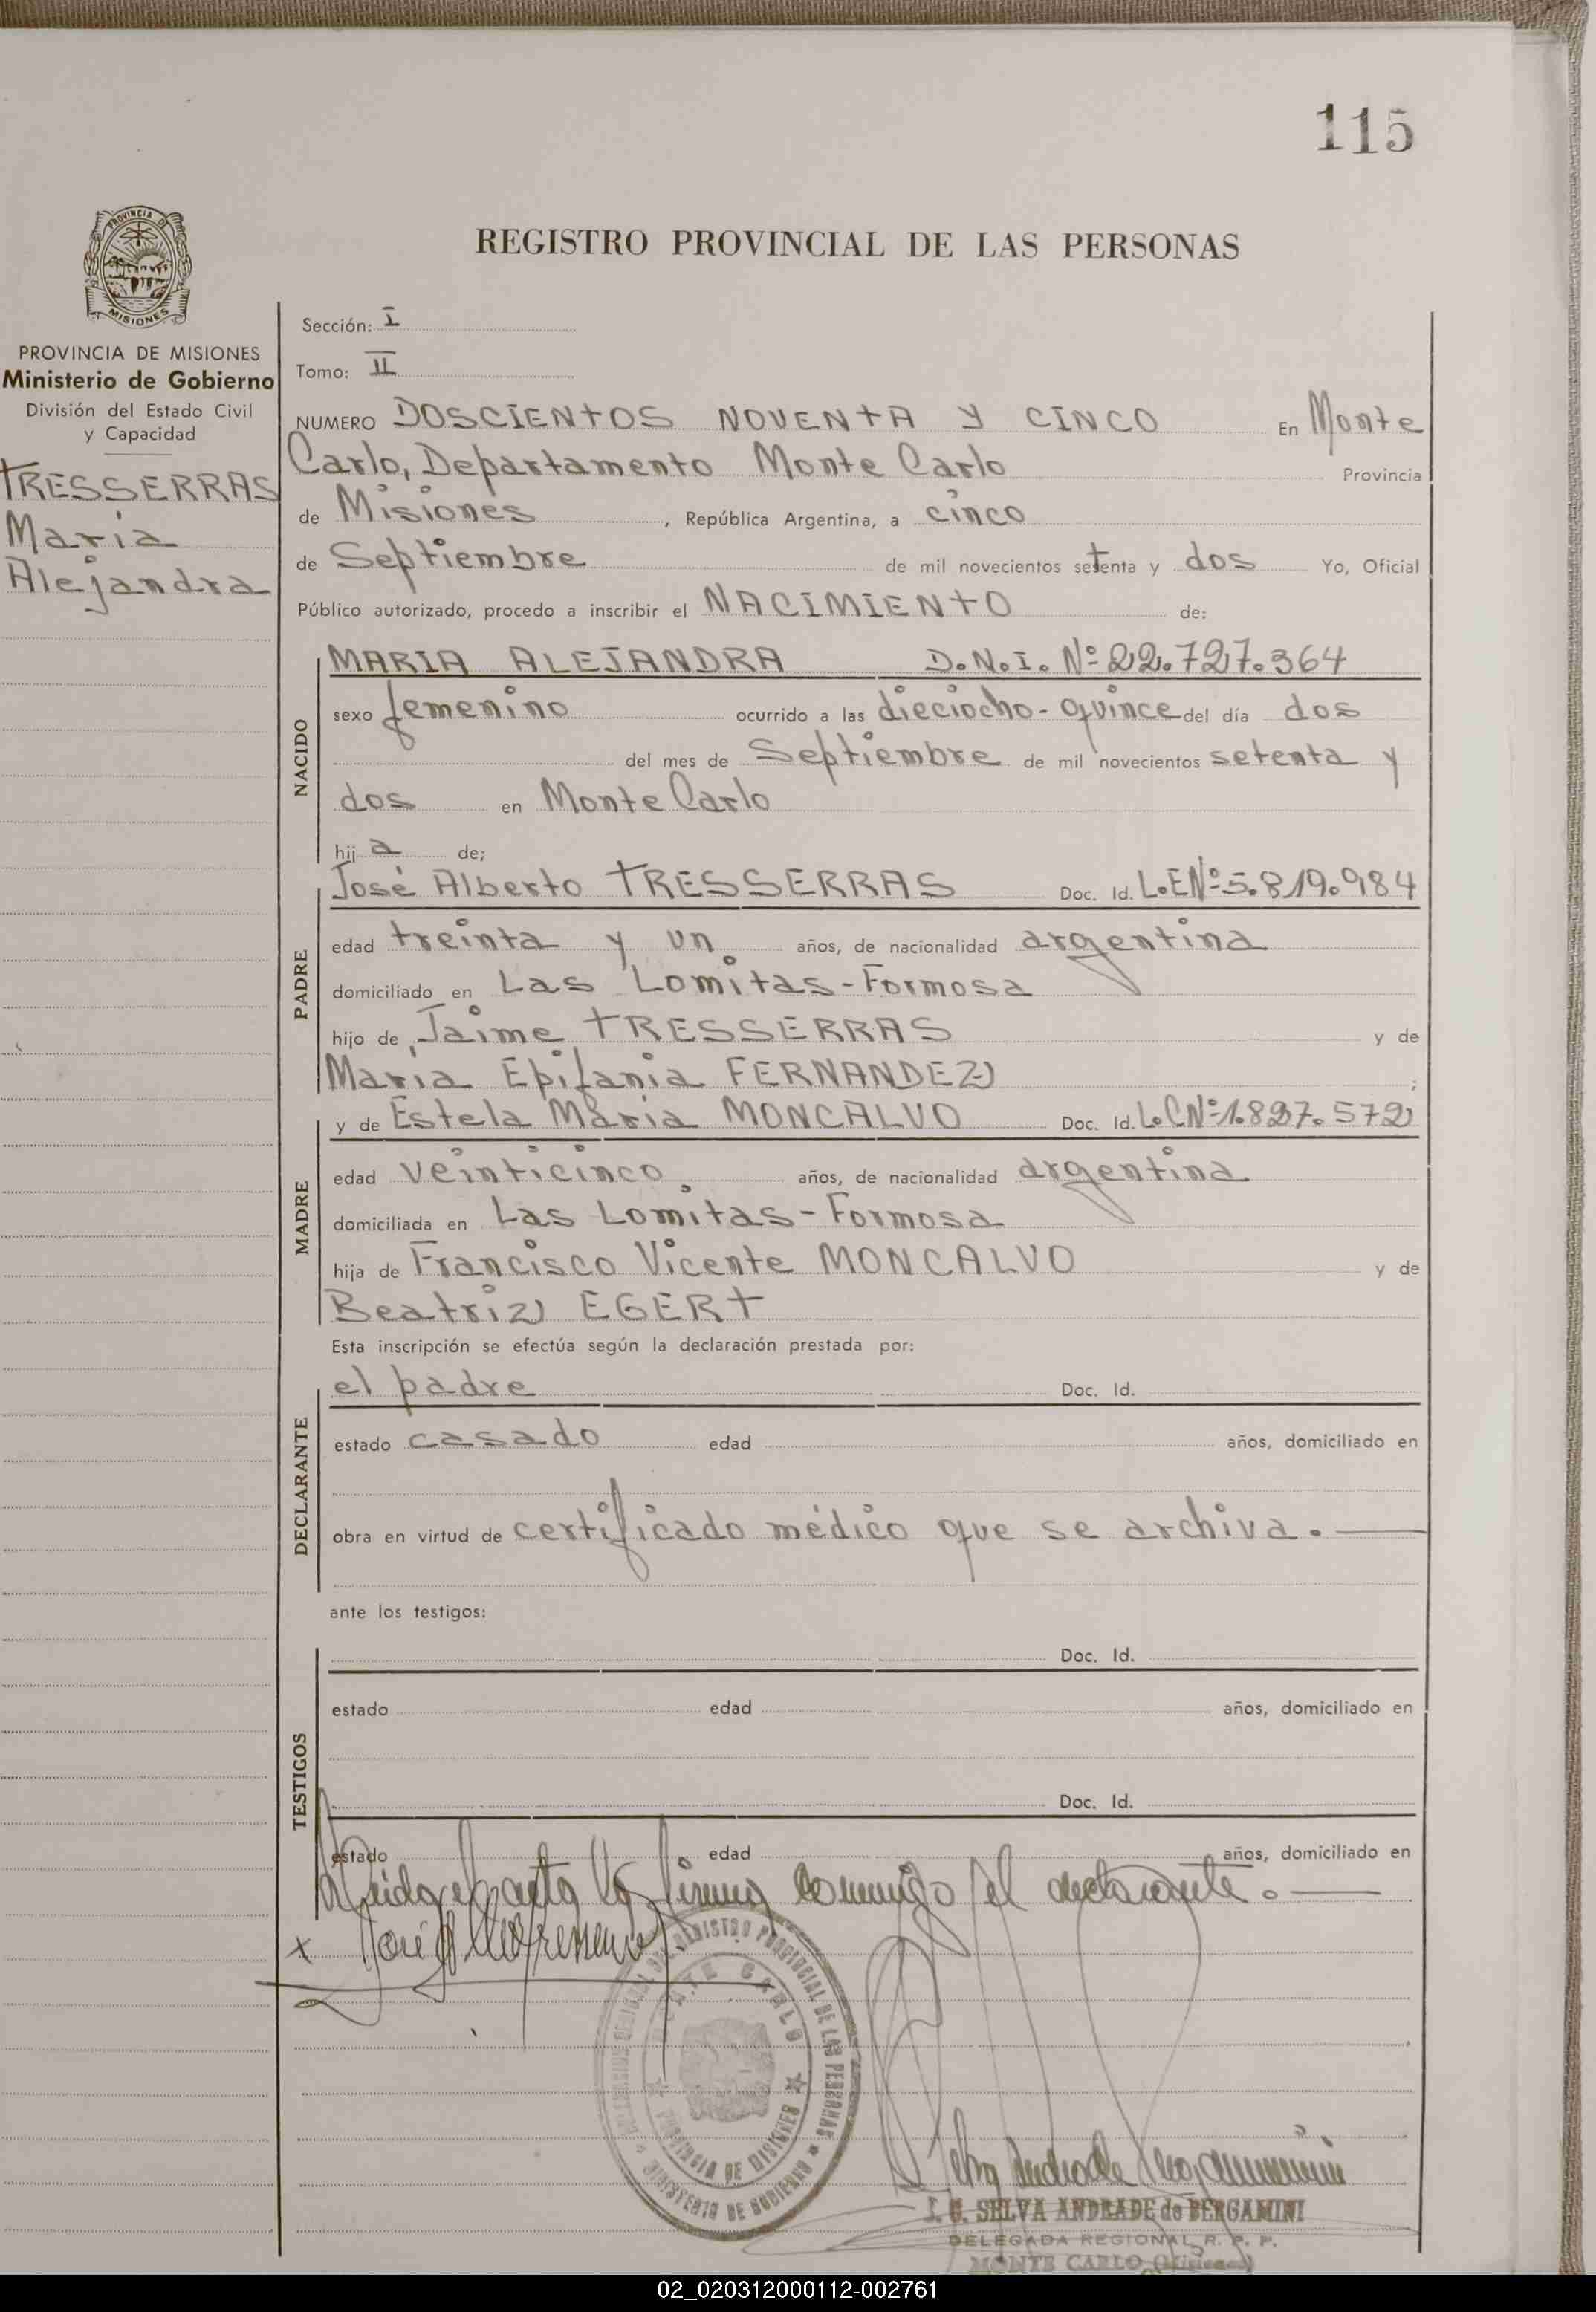 115
REGISTRO PROVINCIAL DE LAS PERSONAS
PROVINCIA DE
MISIONES
PROVINCIA DE MISIONES
Ministerio de Gobierno
División del Estado Civil
y Capacidad
TRESSERRAS
Maria
Alejandra
Sección: I
Tomo: II
NUMERO DOSCIENTOS NOVENTA Y CINCO En Monte
Carlo, Departamento Monte Carlo Provincia
de Misiones, República Argentina, a cinco
de Septiembre de mil novecientos setenta y dos Yo, Oficial
Público autorizado, procedo a inscribir el NACIMIENTO de:
NACIDO
MARIA ALEJANDRA D.N.I. Nº 22.727.364
sexo femenino ocurrido a las dieciocho-quince del día dos
del mes de Septiembre de mil novecientos setenta y
dos en Monte Carlo
hija de;
PADRE
José Alberto TRESSERRAS Doc. Id. L.E.Nº 5.819.984
edad treinta y un años, de nacionalidad argentina
domiciliado en Las Lomitas-Formosa
hijo de Jaime TRESSERRAS y de
Maria Epifania FERNANDEZ ;
MADRE
y de Estela Maria MONCALVO Doc. Id. L.C.Nº 1.827.572
edad veinticinco años, de nacionalidad argentina
domiciliada en Las Lomitas-Formosa
hija de Francisco Vicente MONCALVO y de
Beatriz EGERT
Esta inscripción se efectúa según la declaración prestada por:
DECLARANTE
el padre Doc. Id.
estado casado edad años, domiciliado en
obra en virtud de certificado médico que se archiva.
ante los testigos:
TESTIGOS
Doc. Id.
estado edad años, domiciliado en
Doc. Id.
estado edad años, domiciliado en
Leida el acta la firma conmigo el declarante.
x
REGISTRO PROVINCIAL DE LAS PERSONAS
MONTE CARLO
PROVINCIA DE MISIONES
MINISTERIO DE GOBIERNO
I. G. SELVA ANDRADE de BERGAMINI
DELEGADA REGIONAL R. P. P.
MONTE CARLO (Misiones)
02_020312000112-002761